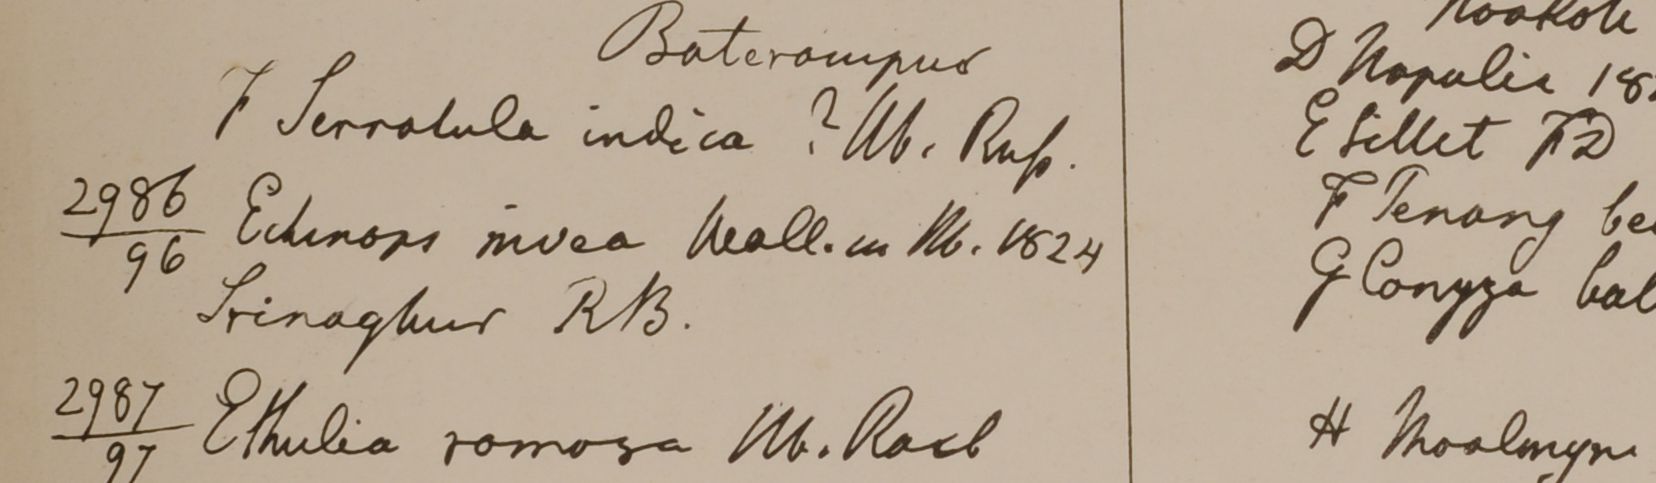 Baterampur
F Serratula indica ? Hb. Russ.
2986
96
Echinops nivea Wall. in Hb. 1824
Srinaghur RB.
2987
97
Ethulia ramosa Hb. Roxb
D Napalia 182
E Sillet FD
F Penang
G Conyza bal
H Moalmyn